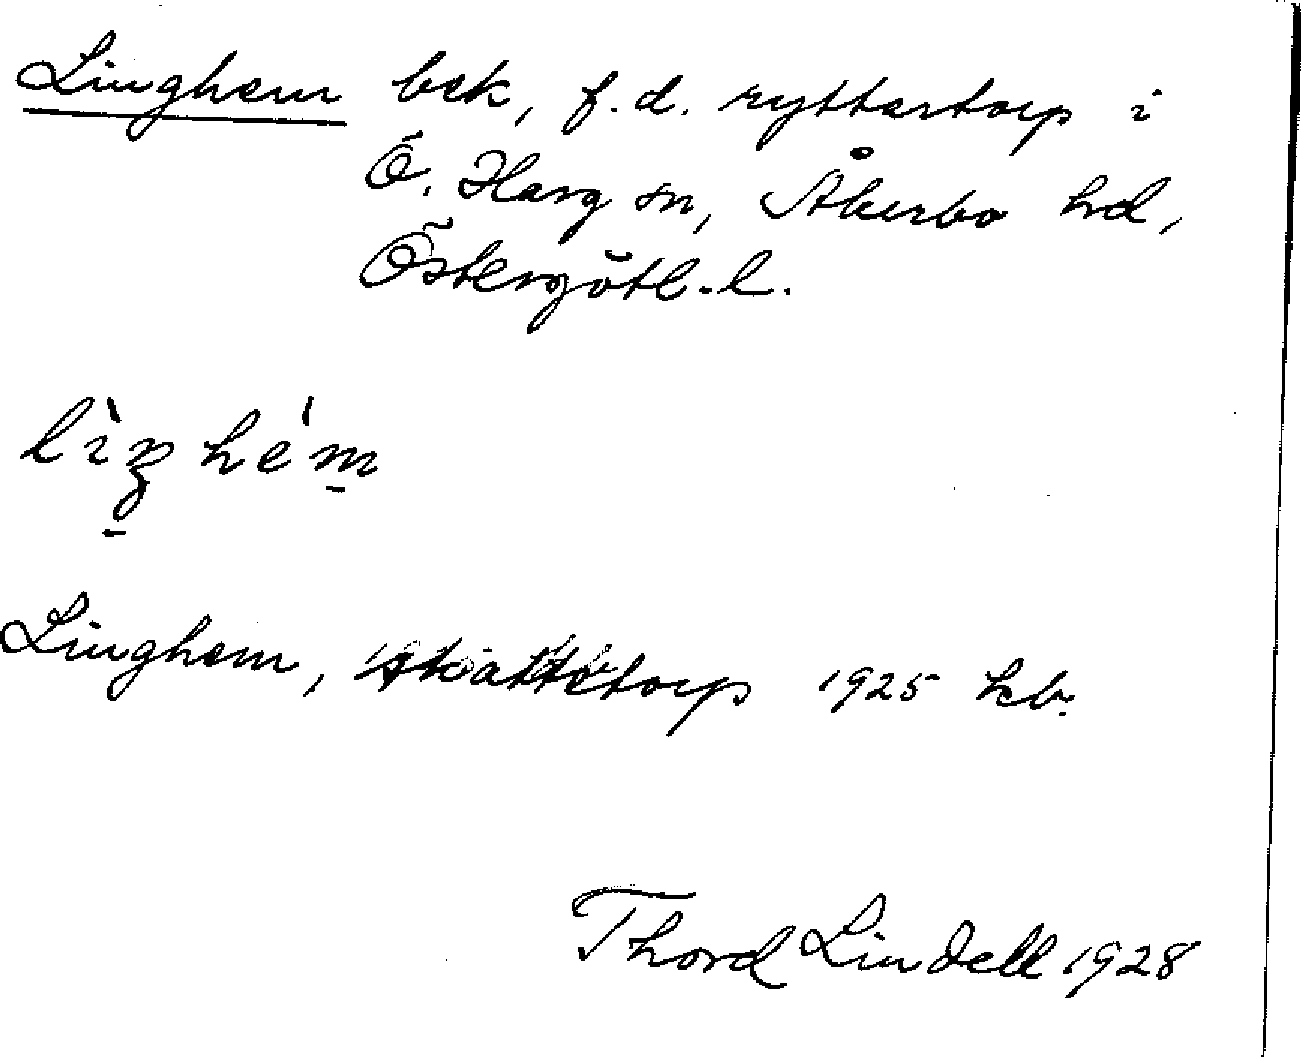 Linghem bek, f.d. ryttartorp i
Ö. Harg sn, Åkerbo hd,
Östergötl. l.
lìŋhém
Linghem, skattetorp 1925 kb.
Thord Lindell 1928